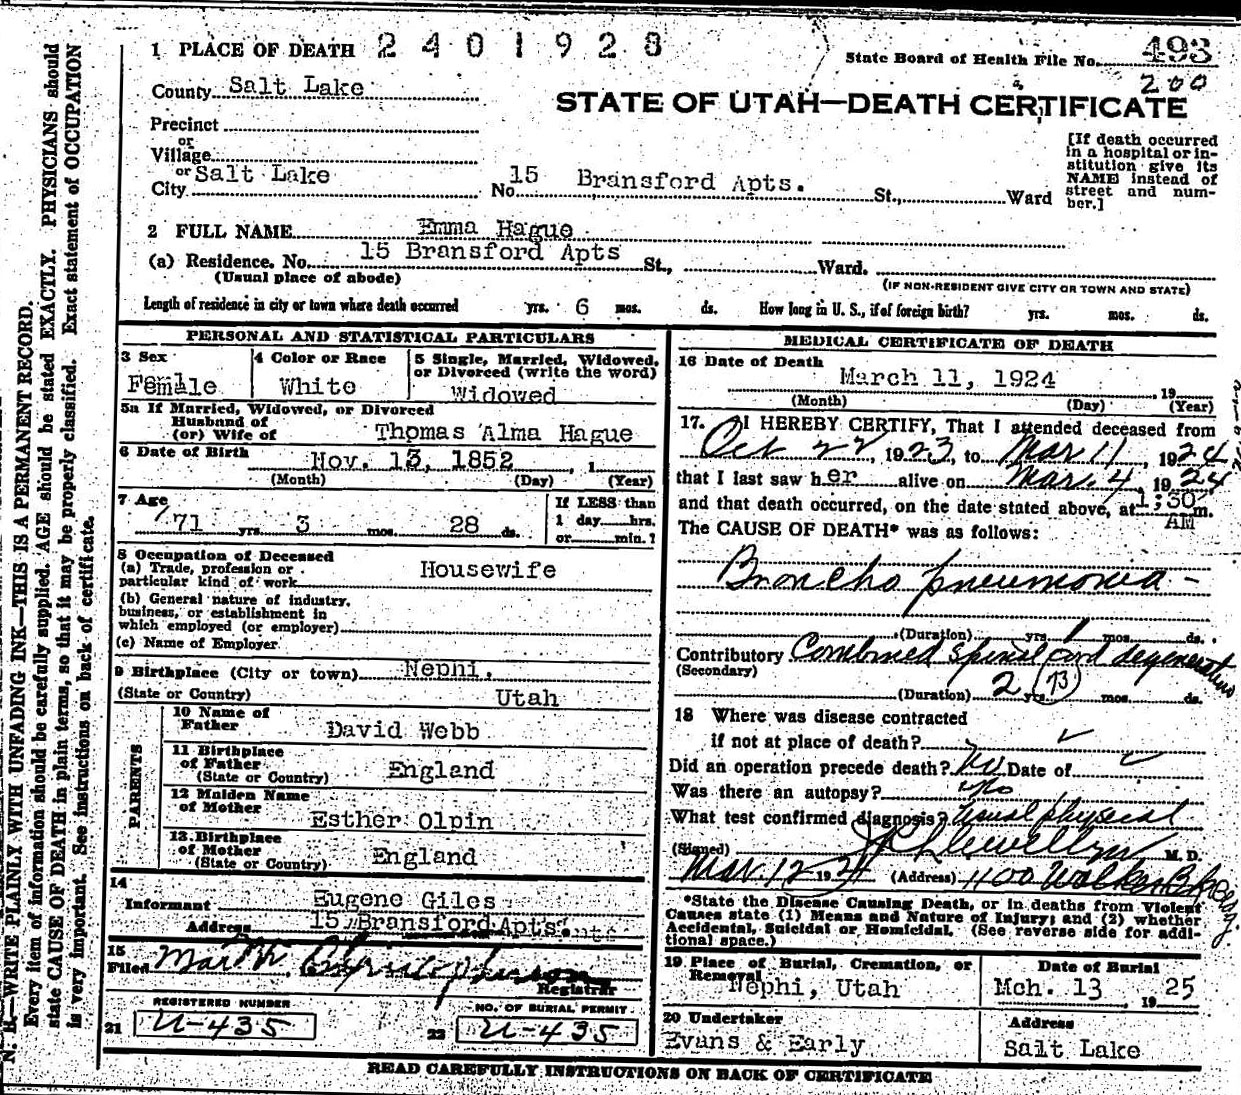 1 PLACE OF DEATH 2401928
State Board of Health File No. 493
200
County Salt Lake
STATE OF UTAH—DEATH CERTIFICATE
Precinct
or
Village
or
City Salt Lake No. 15 Bransford Apts. St., Ward
[If death occurred
in a hospital or in-
stitution give its
NAME instead of
street and num-
ber.]
2 FULL NAME Emma Hague
(a) Residence. No. 15 Bransford Apts St., Ward.
(Usual place of abode)
(IF NON-RESIDENT GIVE CITY OR TOWN AND STATE)
Length of residence in city or town where death occurred yrs. 6 mos. ds. How long in U. S., if of foreign birth? yrs. mos. ds.
PERSONAL AND STATISTICAL PARTICULARS
3 Sex
Female
4 Color or Race
White
5 Single, Married, Widowed,
or Divorced (write the word)
Widowed
5a If Married, Widowed, or Divorced
Husband of
(or) Wife of Thomas Alma Hague
6 Date of Birth Nov. 13, 1852 , 1
(Month) (Day) (Year)
7 Age
71 yrs. 3 mos. 28 ds.
If LESS than
1 day hrs.
or min.?
8 Occupation of Deceased
(a) Trade, profession or
particular kind of work Housewife
(b) General nature of industry,
business, or establishment in
which employed (or employer)
(c) Name of Employer
9 Birthplace (City or town) Nephi,
(State or Country) Utah
PARENTS
10 Name of
Father David Webb
11 Birthplace
of Father
(State or Country) England
12 Maiden Name
of Mother
Esther Olpin
13 Birthplace
of Mother
(State or Country) England
14
Informant Eugene Giles
Address 15 Bransford Apts.
15
Filed Mar
Registrar
REGISTERED NUMBER
21 U-435
NO. OF BURIAL PERMIT
22 U-435
MEDICAL CERTIFICATE OF DEATH
16 Date of Death
March 11, 1924 19
(Month) (Day) (Year)
17. I HEREBY CERTIFY, That I attended deceased from
Oct 22, 1923, to Mar 11, 1924
that I last saw her alive on Mar. 4, 1924
and that death occurred, on the date stated above, at 1:30 m.
AM
The CAUSE OF DEATH* was as follows:
Broncho pneumonia -
(Duration) yrs. 1 mos. ds.
Contributory Combined spinal cord degeneration
(Secondary)
(Duration) 2 yrs. (73) mos. ds.
18 Where was disease contracted
if not at place of death? ✓
Did an operation precede death? No Date of ✓
Was there an autopsy? no
What test confirmed diagnosis? Usual physical
(Signed) Llewellyn M. D.
Mar. 12 1924 (Address) 1100 Walker Bk Bldg.
*State the Disease Causing Death, or in deaths from Violent
Causes state (1) Means and Nature of Injury; and (2) whether
Accidental, Suicidal or Homicidal. (See reverse side for addi-
tional space.)
19 Place of Burial, Cremation, or
Removal
Nephi, Utah
Date of Burial
Mch. 13 , 1925
20 Undertaker
Evans & Early
Address
Salt Lake
READ CAREFULLY INSTRUCTIONS ON BACK OF CERTIFICATE
N. B.—WRITE PLAINLY WITH UNFADING INK—THIS IS A PERMANENT RECORD.
Every item of information should be carefully supplied. AGE should be stated EXACTLY. PHYSICIANS should
state CAUSE OF DEATH in plain terms, so that it may be properly classified. Exact statement of OCCUPATION
is very important. See instructions on back of certificate.